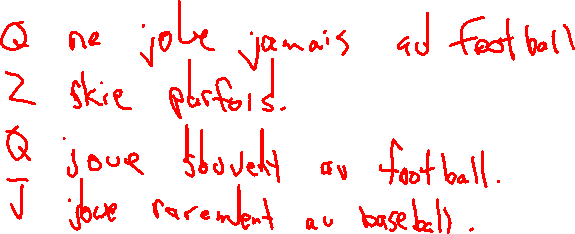 Q ne joue jamais au football
Z skie parfois.
Q joue souvent au football.
J joue rarement au baseball.